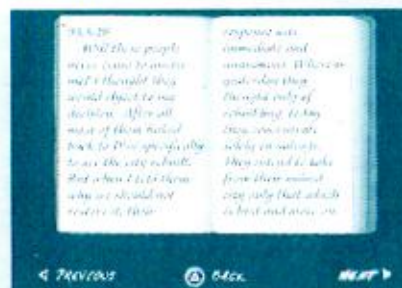 Will these people
never cease to amaze
me? I thought they
would object to my
decision. After all
most of them linked
back to D'ni specifically
to see the city rebuilt.
But when I told them
why we should not
restore it, their
response was
immediate and
unanimous. Where as
yesterday they
thought only of
rebuilding, today
they concentrate
solely on
They intend to take
from their ruined
city only that which
is best and move on.
PREVIOUS
BACK
NEXT